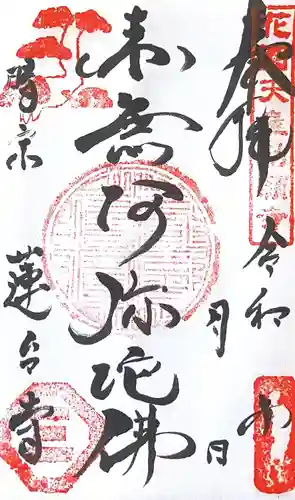 奉拝
令和 年
月 日
南無阿弥陀佛
時宗
蓮台寺